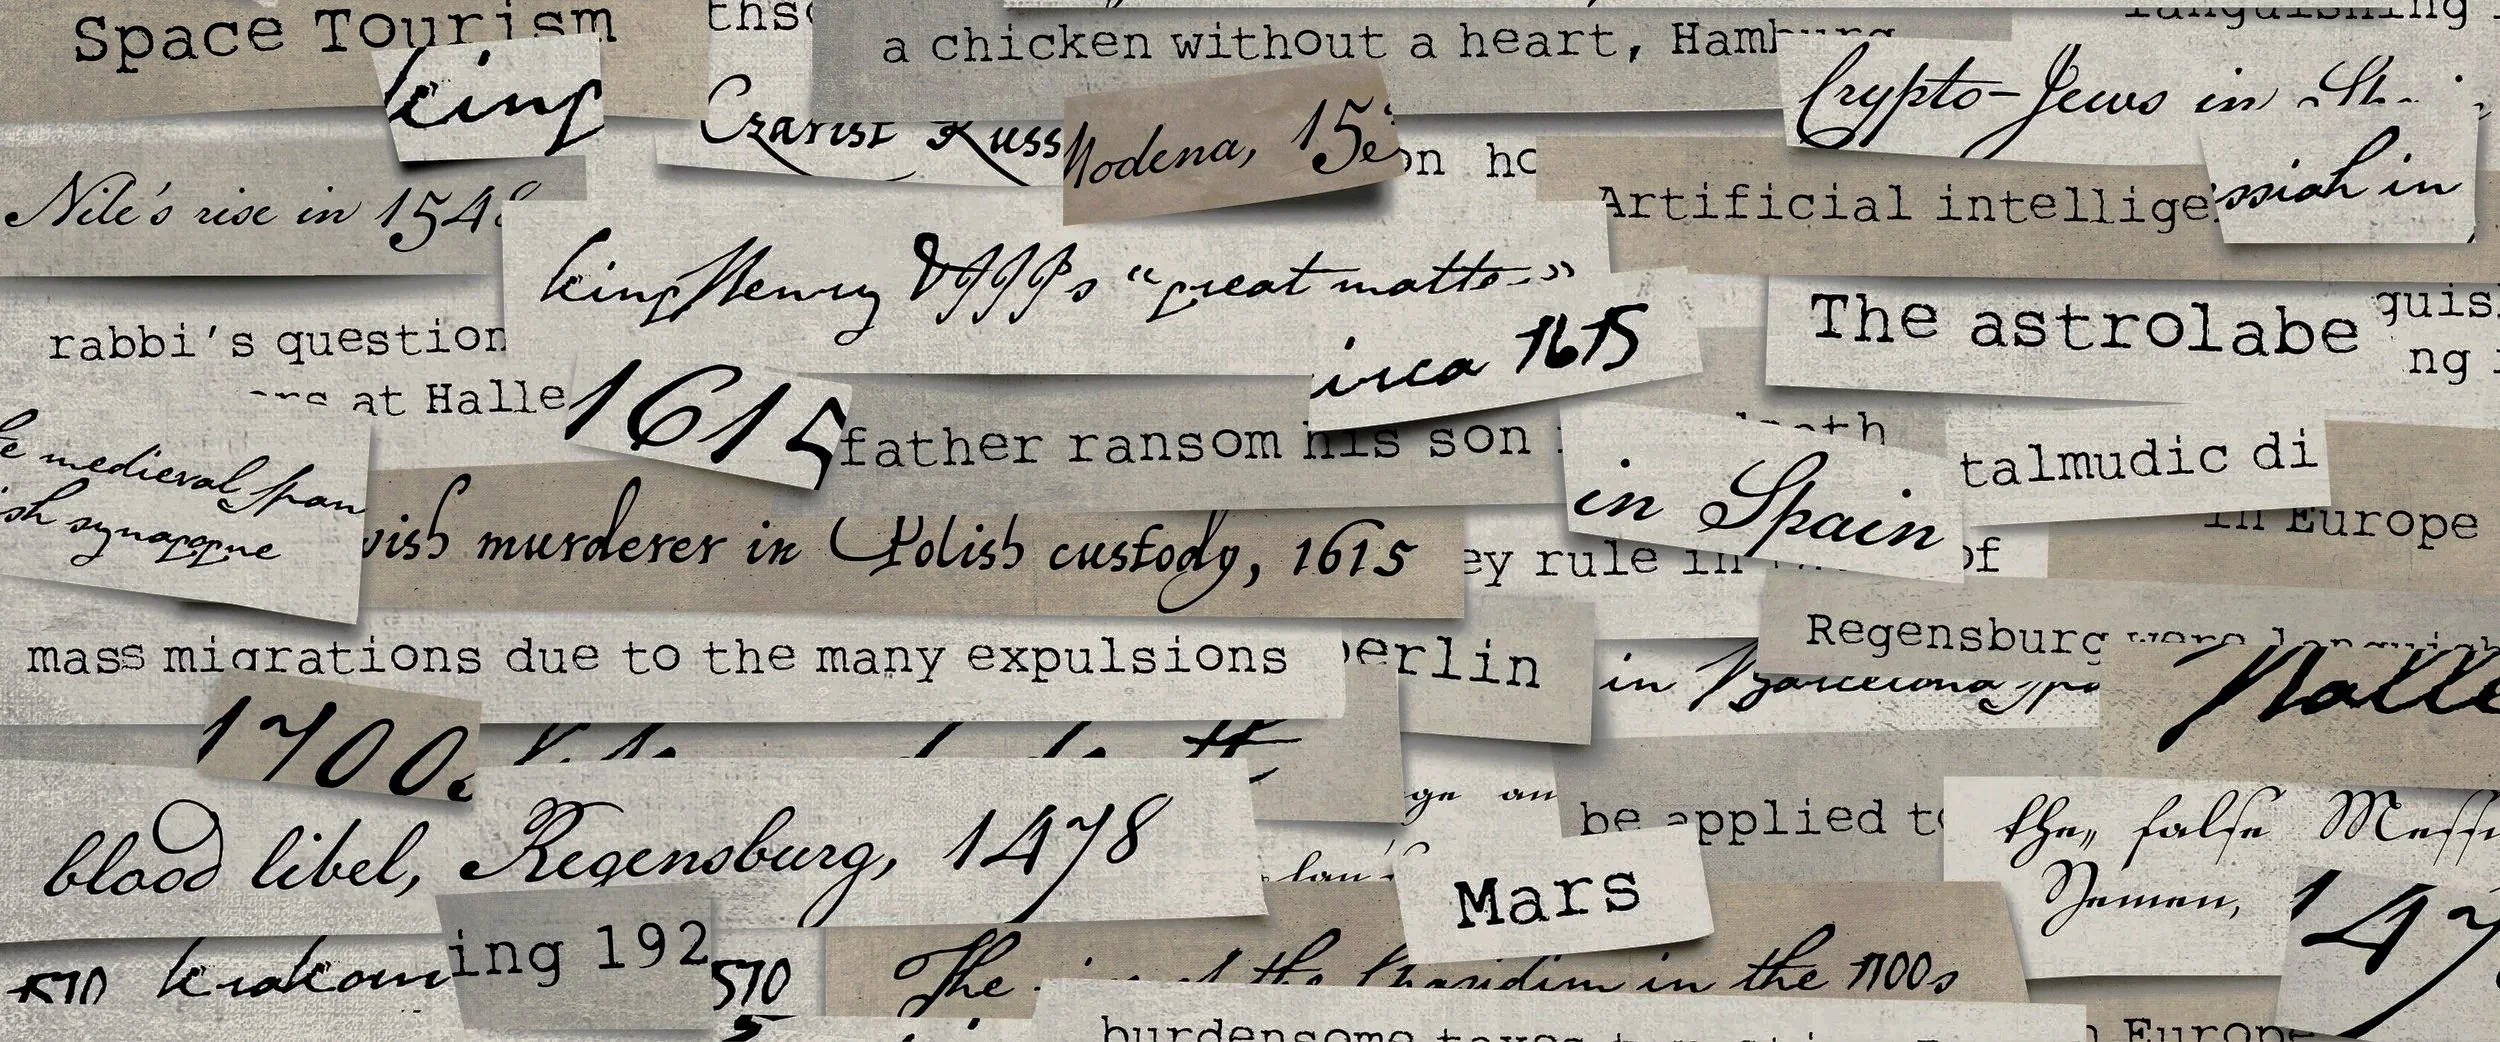 Space Tourism
king
a chicken without a heart,
Crypto-Jews in
Czarist Russ
Modena, 15
on ho
Artificial intellige
ssiah in
Nile's rise in 154
king Henry VIII's "great matter"
circa 1615
The astrolabe
guis
ng
rabbi's question
at Halle
1615
father ransom his son
in Spain
talmudic di
in Europe
medieval Span
ish synagogue
wish murderer in Polish custody, 1615
ey rule in of
mass migrations due to the many expulsions
erlin
Regensburg were
in Barcelona, Spa
Halle
1700s
ge an
be applied to
the false Messi
Yemen,
blood libel, Regensburg, 1478
Mars
147
ing 192
krakow
570
The of the Chasidim in the 1700s
burdensome taxes
Europe